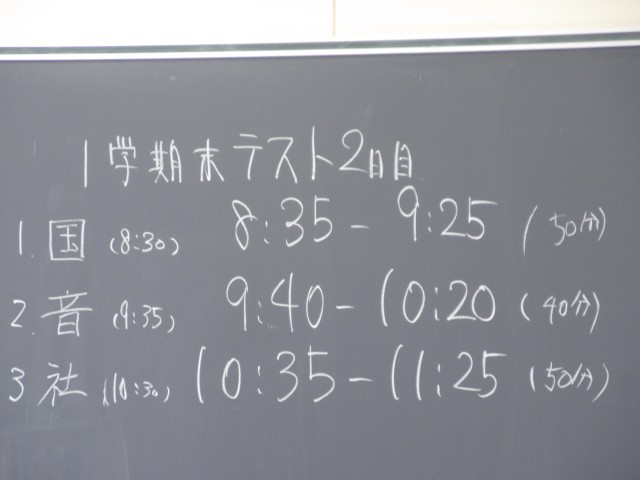 1学期末テスト2日目
1. 国 (8:30) 8:35 - 9:25 (50分)
2. 音 (9:35) 9:40 - 10:20 (40分)
3 社 (10:30) 10:35 - 11:25 (50分)